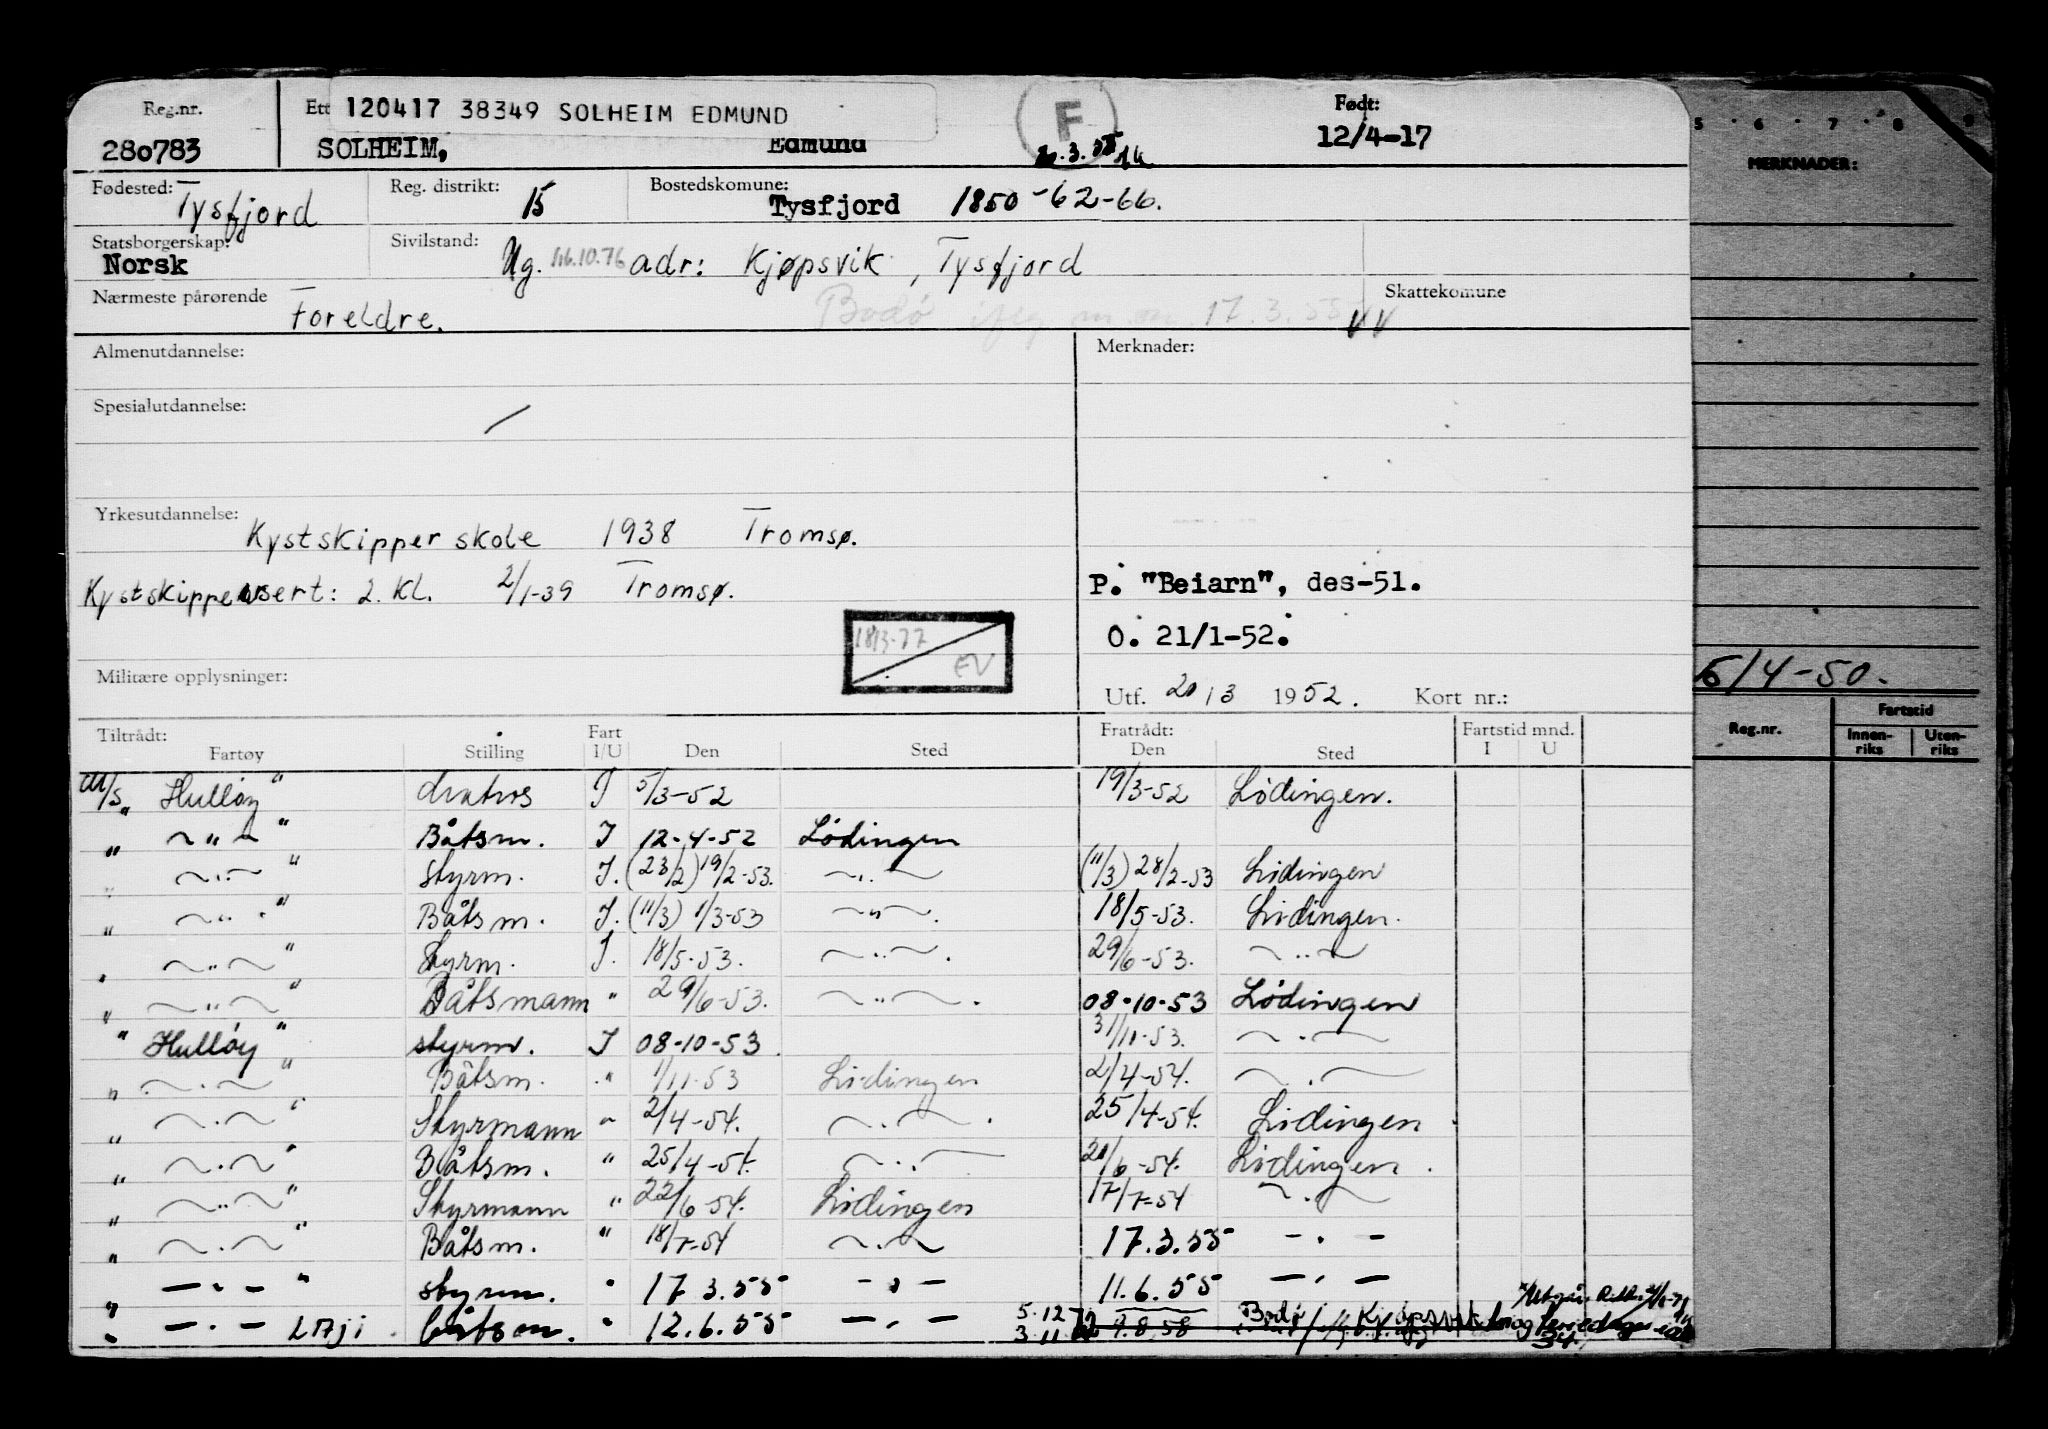 Reg.nr. Ett 120417 38349 SOLHEIM EDMUND F Født:
280783 SOLHEIM, Edmund 12/4-17
Fødested: Tysfjord Reg. distrikt: 15 Bostedskomune: Tysfjord 1850-62-66.
Statsborgerskap: Norsk Sivilstand: Ug. 16.10.76 adr: Kjøpsvik, Tysfjord
Nærmeste pårørende Foreldre. Bodö 17.3.55 Skattekomune
Almenutdannelse: Merknader:
Spesialutdannelse: /
Yrkesutdannelse: Kystskipperskole 1938 Tromsø.
Kystskippersert: 2. Kl. 2/1-39 Tromsø. P. "Beiarn", des-51.
18/3-77 EV O. 21/1-52.
Militære opplysninger: Utf. 20/3 1952. Kort nr.:
Tiltrådt: Fart Fratrådt: Fartstid mnd.
Fartøy Stilling I/U Den Sted Den Sted I U
M/S "Hulløy" Matros I 5/3-52 19/3-52 Lödingen.
" ~"~ " Båtsm. I 12-4-52 Lödingen
" ~"~ " Styrm. I. (23/2) 19/2-53. ~"~ (11/3) 28/2-53 Lödingen
" ~"~ " Båtsm. I. (11/3) 1/3-53 ~"~. 18/5-53. Lödingen.
" ~"~ " Styrm. I. 18/5-53. ~"~. 29/6-53. ~"~
" ~"~ " Båtsmann " 29/6-53. ~"~. 08-10-53 Lödingen
" Hulløy " styrm. I 08-10-53. 31/11-53. ~"~
" ~"~ " Båtsm. " 1/11-53 Lödingen 2/4-54. ~"~
" ~"~ " Styrmann " 2/4-54. ~"~. 25/4-54. Lödingen
" ~"~ " Båtsm. " 25/4-54. ~"~ 20/6-54. Lödingen.
" ~"~ " Styrmann " 22/6-54. Lödingen 17/7-54 ~"~
" ~"~ " Båtsm. " 18/7-54 ~"~ 17.3.55 -"-
" -"- " styrm. " 17.3.55 -"- 11.6.55 -"-
" -"- Båtsm. " 12.6.55 -"- 5.12 3.11 9.8.58 Bodø Kjøpsvik
MERKNADER:
5/4-50.
Reg.nr. Fartstid
Innen-riks Uten-riks
5 6 7 8 9